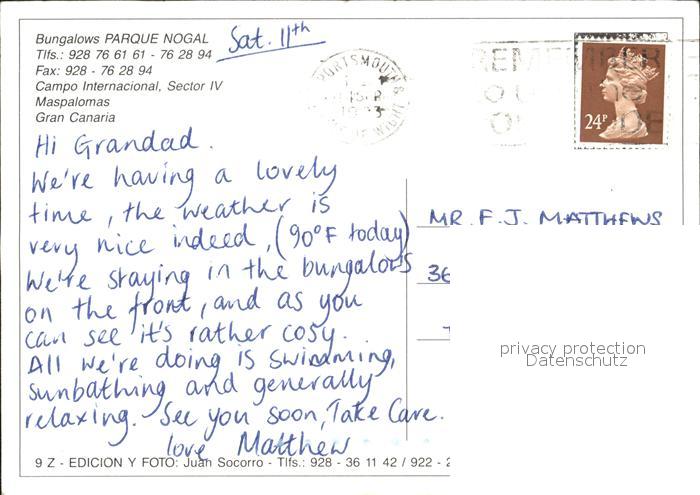 Bungalows PARQUE NOGAL
Tlfs.: 928 76 61 61 - 76 28 94
Fax: 928 - 76 28 94
Campo Internacional, Sector IV
Maspalomas
Gran Canaria
Sat. 11th
PORTSMOUTH &
WIGHT
REMEMBER
24P
Hi Grandad.
We're having a lovely
time, the weather is
very nice indeed, (90°F today)
We're staying in the bungalows
on the front, and as you
can see it's rather cosy.
All we're doing is swimming,
sunbathing and generally
relaxing. See you soon, Take Care.
love Matthew
MR F. J. MATTHEWS
36
privacy protection
Datenschutz
9 Z - EDICION Y FOTO: Juan Socorro - Tlfs.: 928 - 36 11 42 / 922 - 2